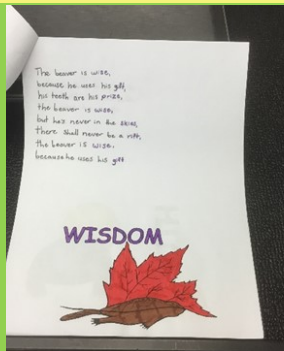 The beaver is wise,
because he uses his gift,
his teeth are his prize,
the beaver is wise,
but he's never in the skies,
there shall never be a rift,
the beaver is wise,
because he uses his gift
WISDOM